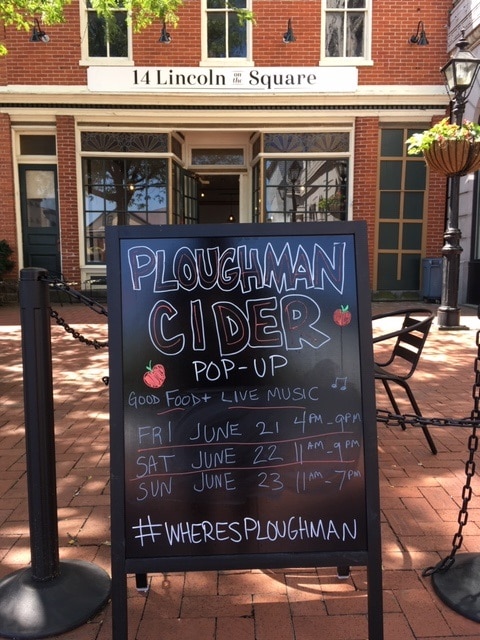 14 Lincoln on the Square
PLOUGHMAN
CIDER
POP-UP
GOOD FOOD + LIVE MUSIC
FRI JUNE 21 4PM-9PM
SAT JUNE 22 11AM-9PM
SUN JUNE 23 11AM-7PM
#WHERESPLOUGHMAN